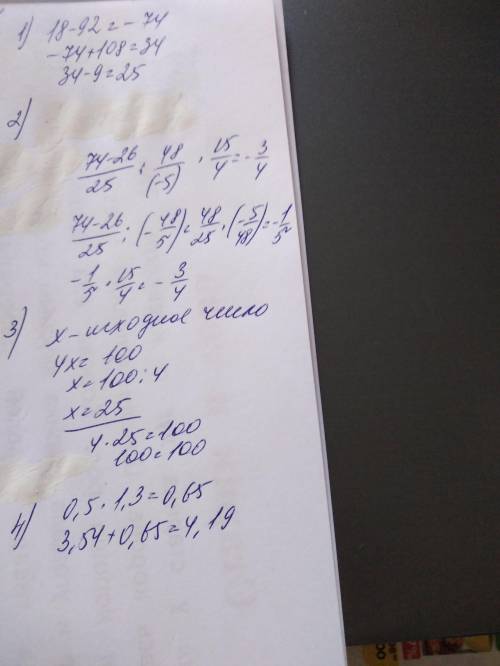 1) 18-92=-74
-74+108=34
34-9=25
2)
74-26/25 : 48/(-5) · 15/4 = -3/4
74-26/25 : (-48/5) = 48/25 · (-5/48) = -1/5
-1/5 · 15/4 = -3/4
3) x-исходное число
4x=100
x=100:4
x=25
4·25=100
100=100
4) 0,5·1,3=0,65
3,54+0,65=4,19